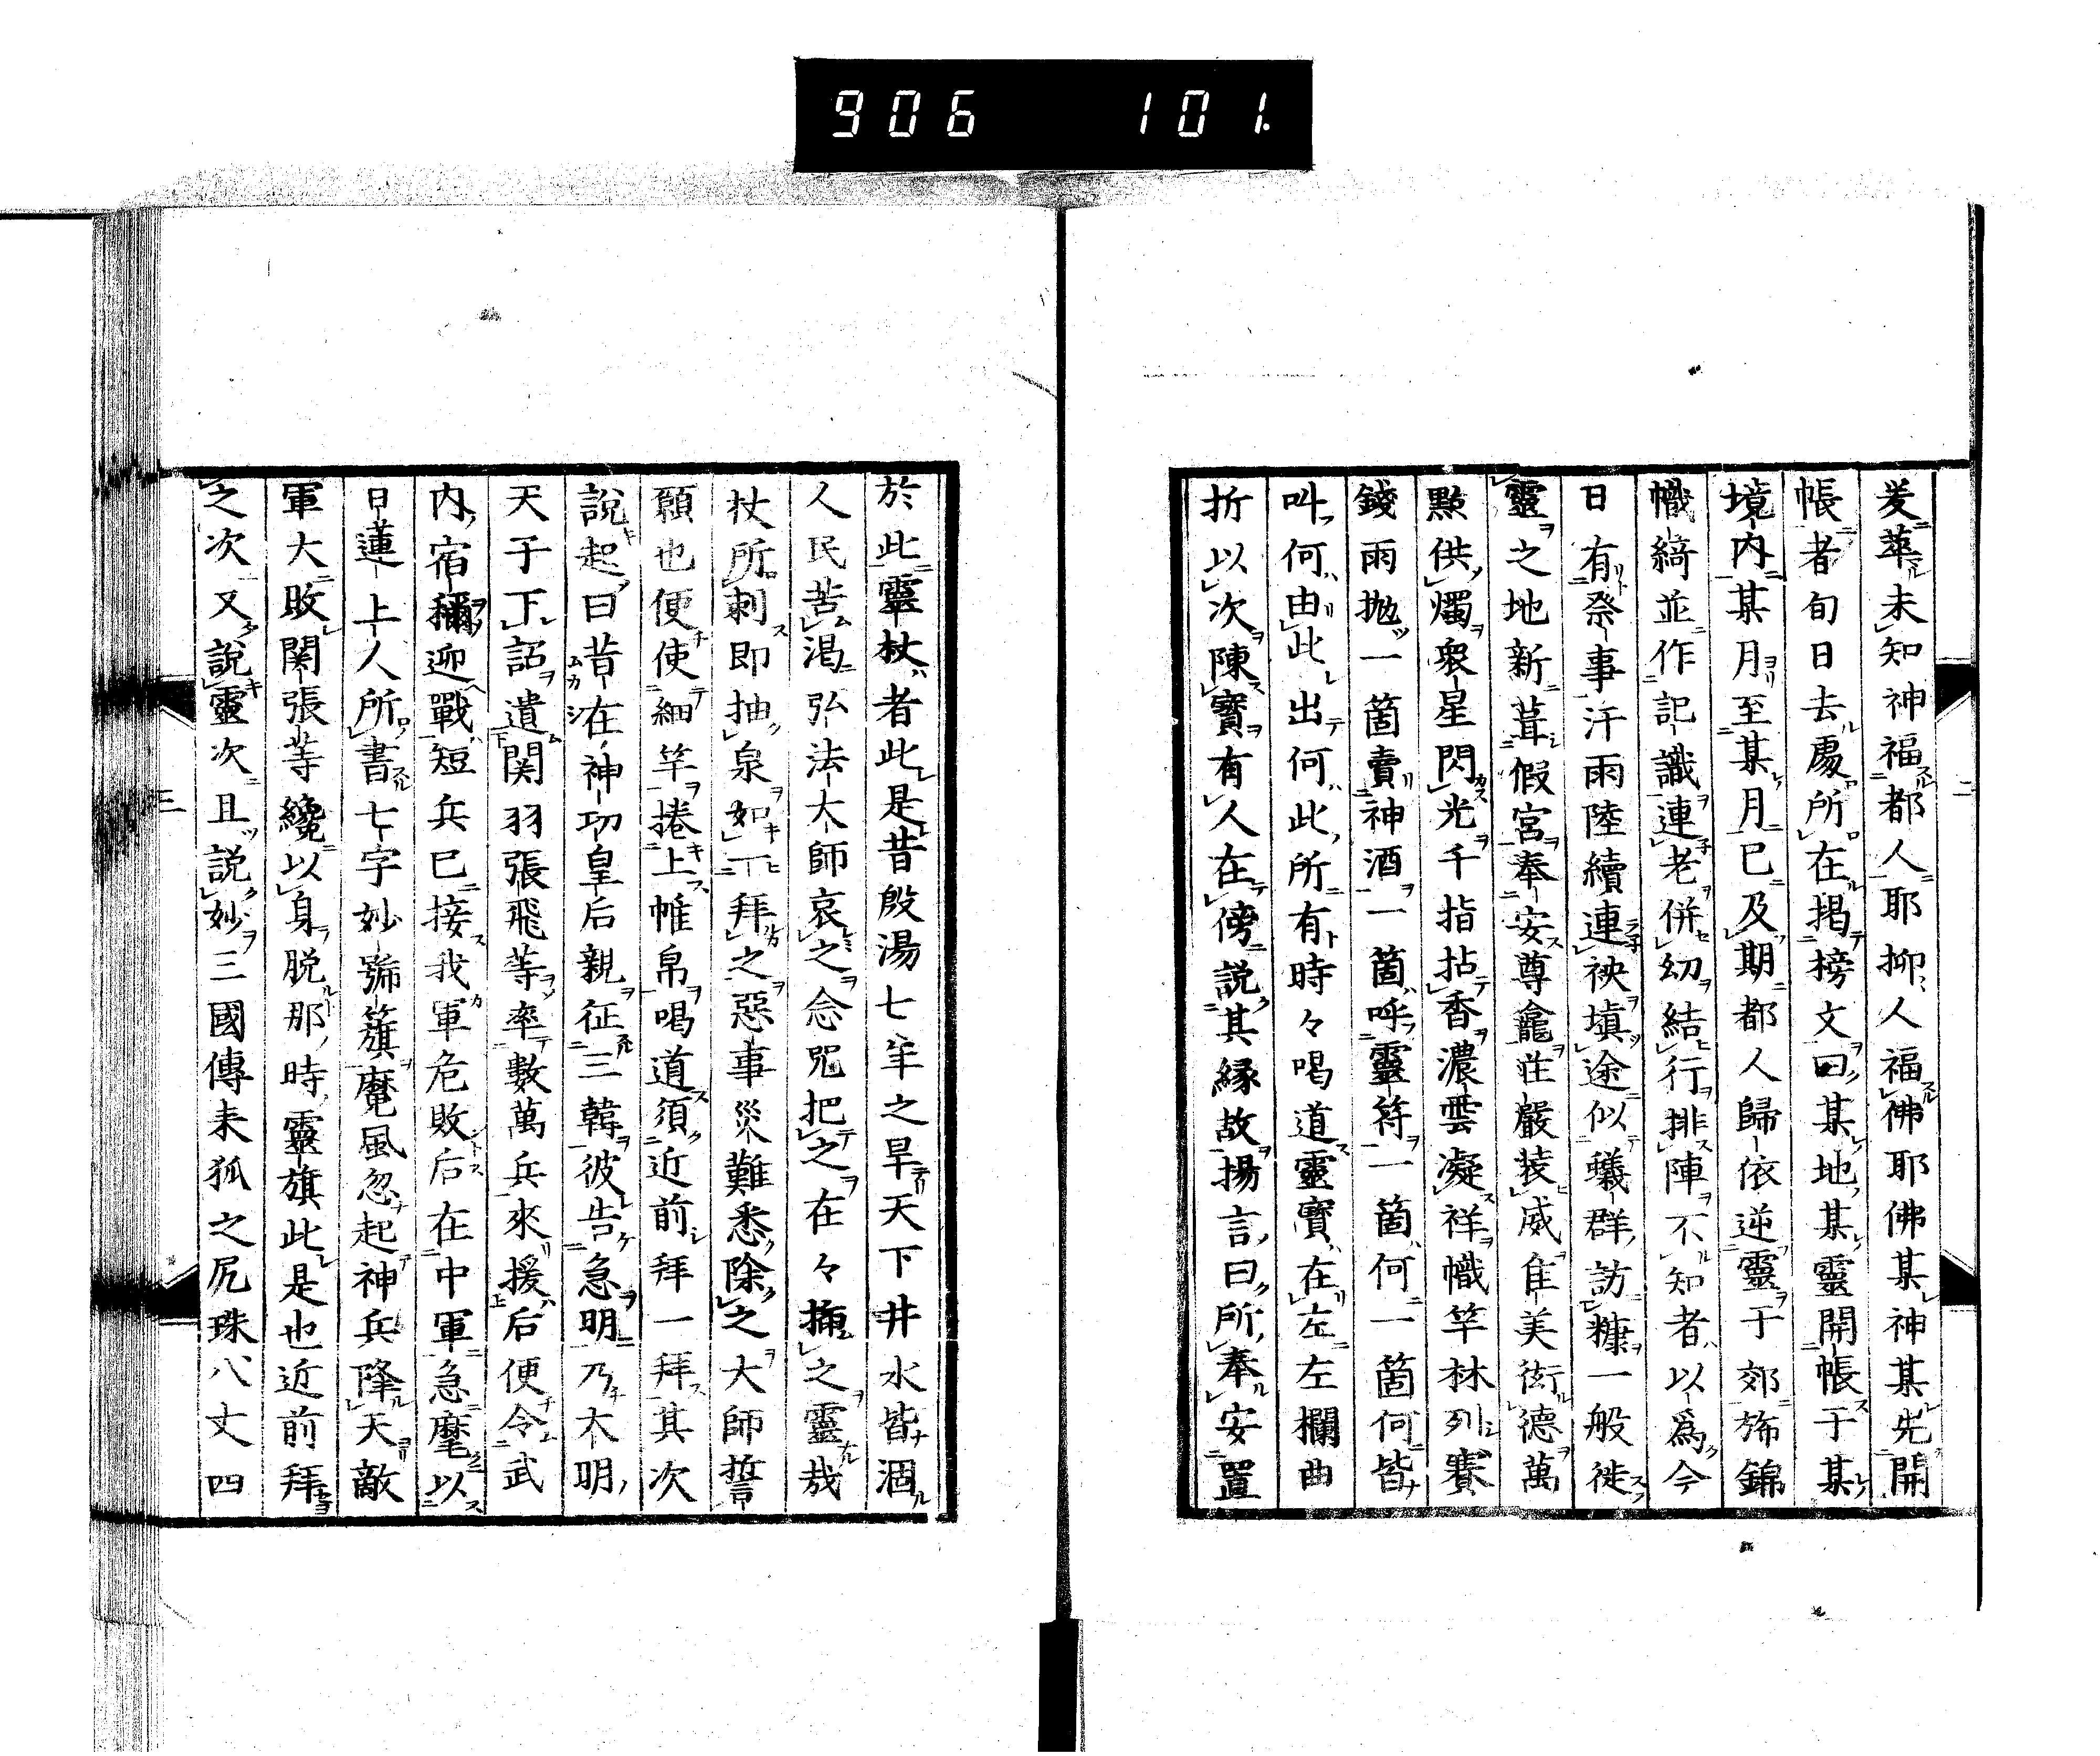 906 101.
爰萃未知神福都人耶抑人福佛耶佛某神某先開
帳者旬日去處所在揭榜文曰某地某靈開帳于某
境内某月至某月已及期都人歸依逆靈于郊旆錦
幟綺並作記識連老併幼結行排陣不知者以爲今
日有祭事汗雨陸續連袂塡途似蟻群訪糠一般徙
靈之地新葺假宮奉安尊龕莊嚴裝威隹美衒德萬
點供燭衆星閃光千指拈香濃雲凝祥幟竿林列賽
錢雨拋一箇賣神酒一箇呼靈符一箇何一箇何皆
叫何由此出何此所有時々喝道靈寶在左左欄曲
折以次陳寶有人在傍説其縁故揚言曰所奉安置
二
於此靈杖者此是昔殷湯七年之旱天下井水皆涸
人民苦渇弘法大師哀之念咒把之在々捅之靈哉
杖所刺即抽泉如丁拜之惡事災難悉除之大師誓
願也便使細竿捲上帷帛喝道須近前拜一拜其次
説起曰昔在神功皇后親征三韓彼告急明乃大明
天子下詔遣関羽張飛等率數萬兵來援后便令武
内宿禰迎戰短兵已接我軍危敗后在中軍急麾以
日蓮上人所書七字妙號籏魔風忽起神兵降天敵
軍大敗関張等纔以身脱那時靈旗此是也近前拜
之次又説靈次且説妙三國傳来狐之尻珠八丈四
三